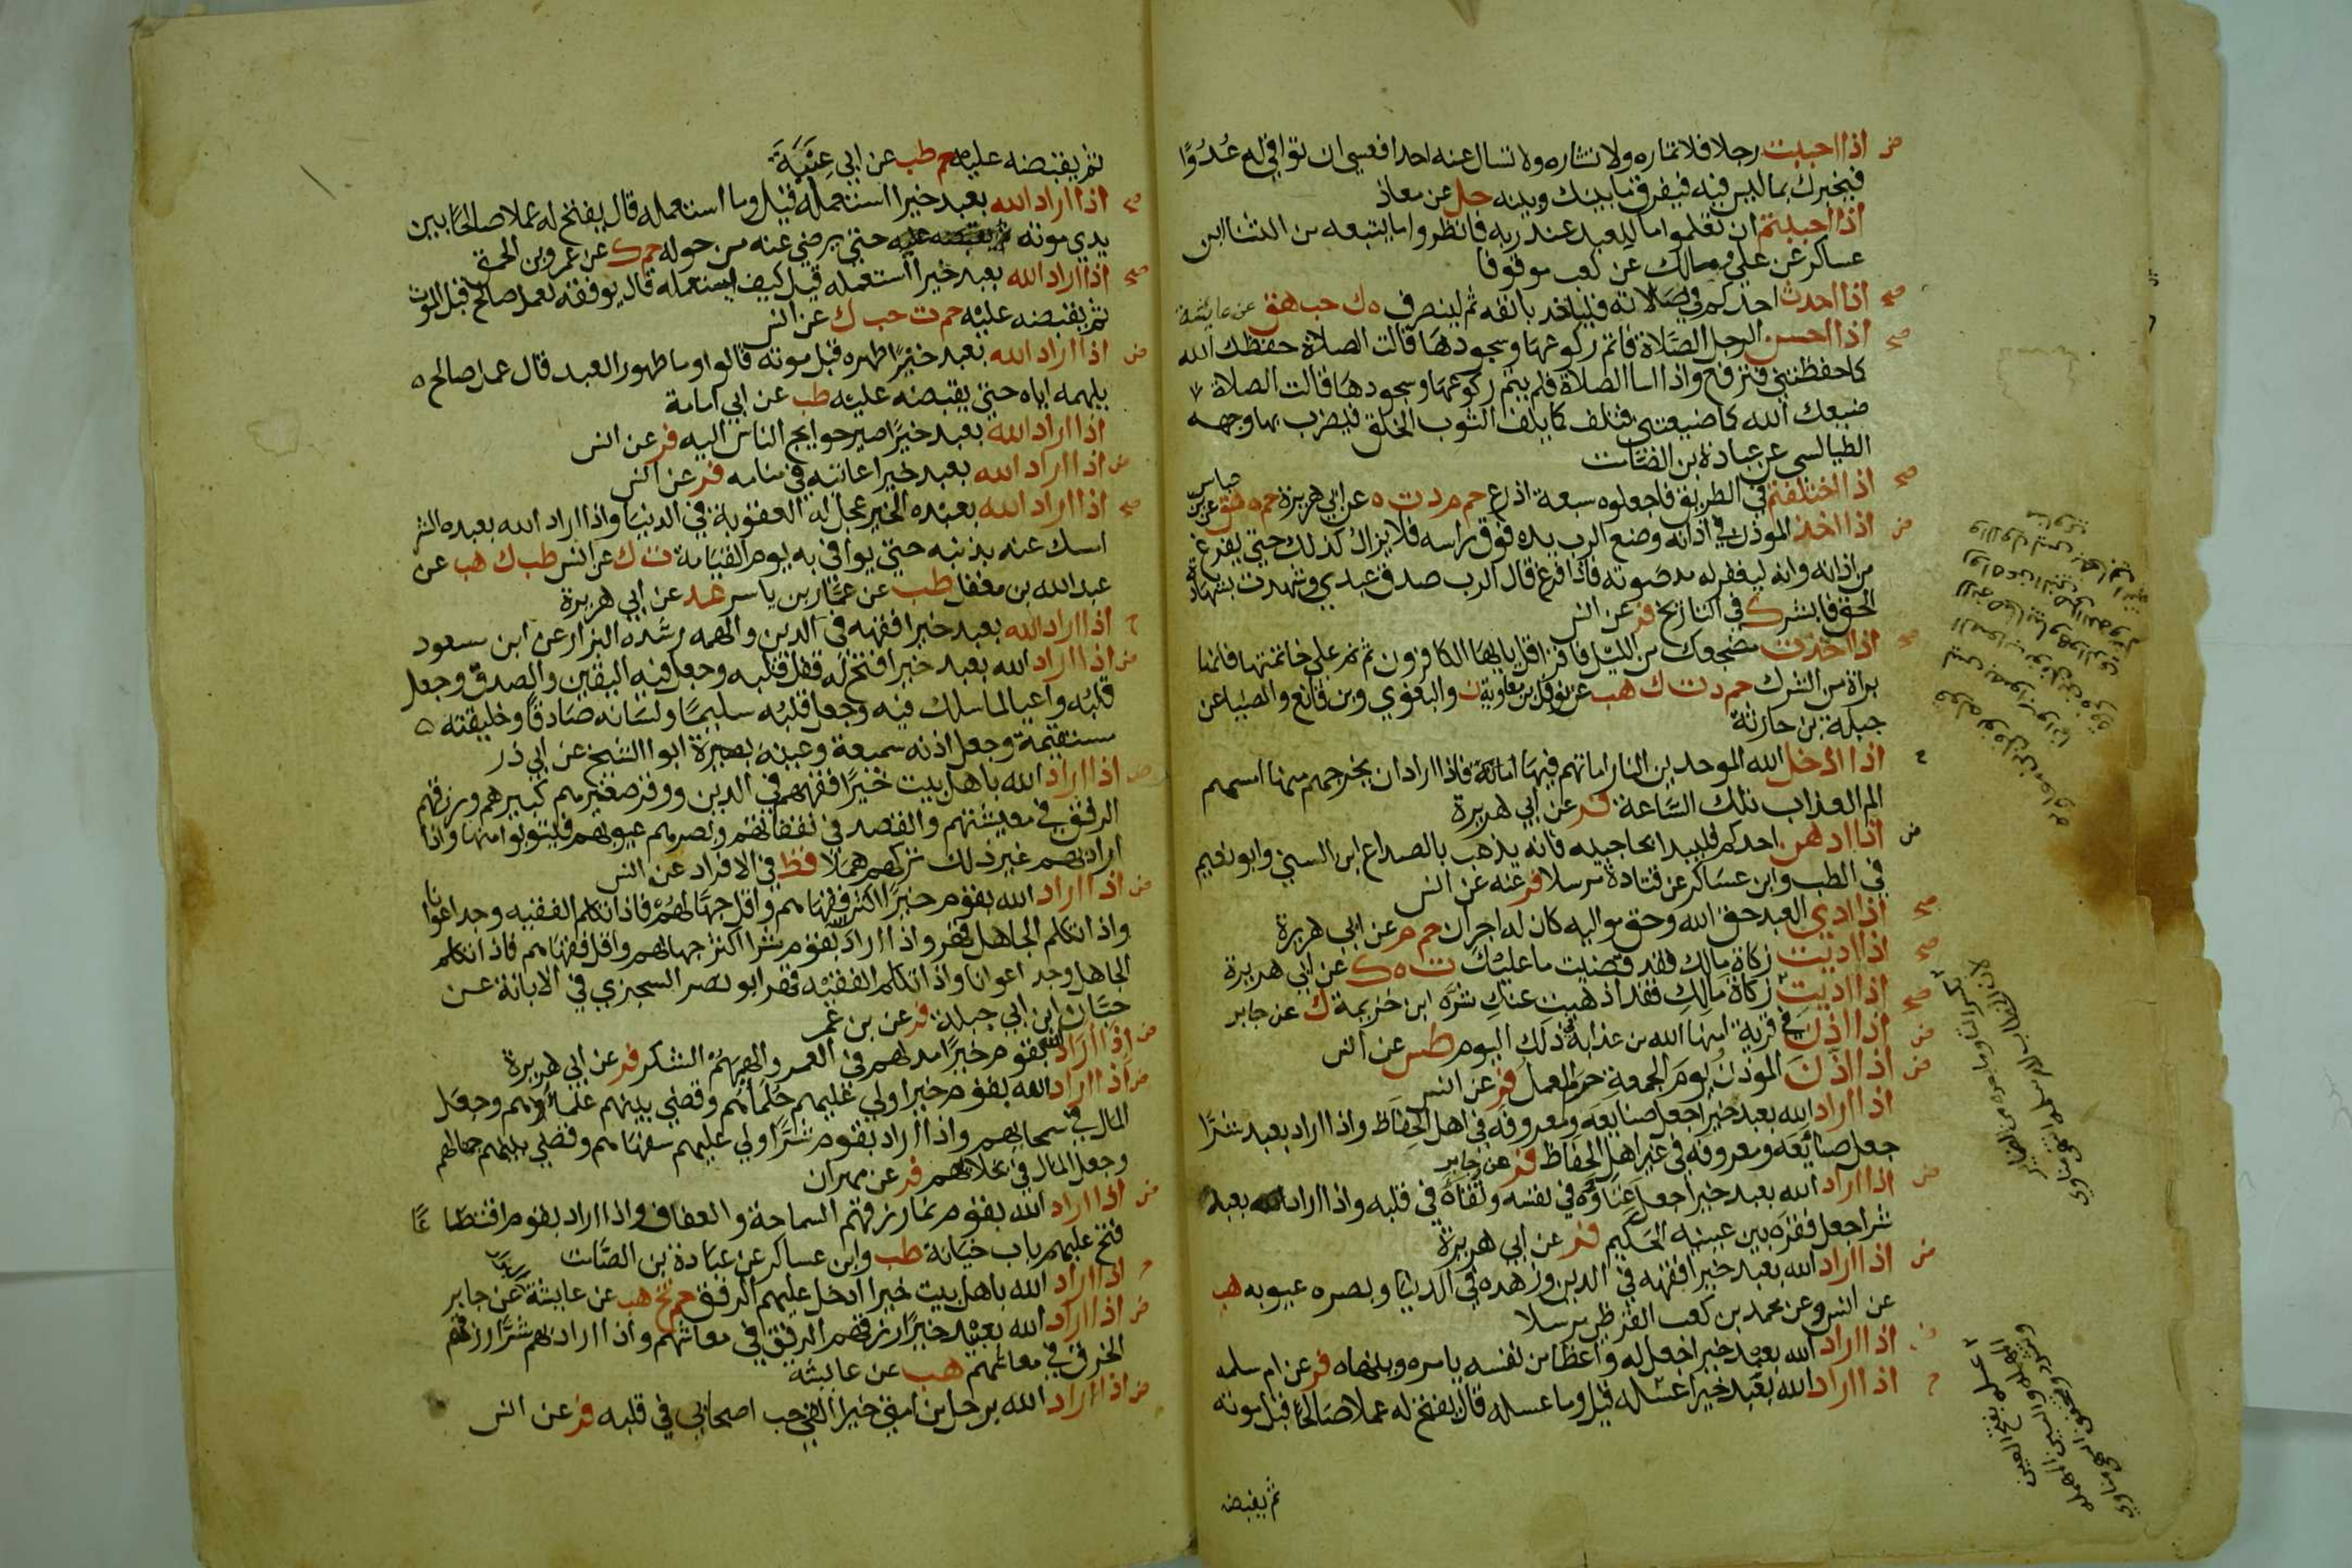 ض اذا احببت رجلا فلا تماره ولا تشاره ولا تسال عنه احدا فعسى ان توافي له عُدُوًّا
فيخبرك بما ليس فيه فيفرق ما بينك وبينه حل عن معاذ
اذا احببتم ان تعلموا ما للعبد عند ربه فانظروا ما يتبعه من الثنا ابن
عساكر عن علي ومالك عن كعب موقوفا
صح اذا احدث احدكم في صلاته فلياخذ بانفه ثم لينصرف ه ك حب هق عن عايشة
صح اذا احسن الرجل الصَّلاة فاتم ركوعها وسجودها قالت الصلاة حفظك الله
كما حفظتني فترفع واذا اسا الصلاة فلم يتم ركوعها وسجودها قالت الصلاة
ضيعك الله كما ضيعتني فتلف كما يلف الثوب الخلق فيضرب بها وجهه
الطيالسي عن عبادة بن الصَّامت
صح اذا اختلفتم في الطريق فاجعلوه سبعة اذرع حم م د ت ه عن ابي هريرة حم ه هق عن بن عباس
ض اذا اخذ الموذن في اذانه وضع الرب يده فوق راسه فلا يزال كذلك حتى يفرغ
من اذانه وانه ليغفر له مد صوته فاذا فرغ قال الرب صدق عبدي وشهدت بشهادة
الحق فابشر ك في التاريخ فر عن انس
صح اذا اخذت مضجعك من الليل فاقرا قل يا ايها الكافرون ثم نم على خاتمتها فانها
براة من الشرك حم د ت ك هب عن نوفل بن معاوية ن والبغوي وبن قانع والضيا عن
جبلة بن حارثة
اذا ادخل الله الموحدين النار اماتهم فيها اماتة فاذا اراد ان يخرجهم منها امسهم
الم العذاب تلك السَّاعة فر عن ابي هريرة
ض اذا ادهن احدكم فليبدا بحاجبيه فانه يذهب بالصداع ابن السني وابو نعيم
في الطب وابن عساكر عن قتادة مرسلا فر عنه عن انس
صح اذا ادي العبد حق الله وحق مواليه كان له اجران حم م عن ابي هريرة
صح اذا اديت زكاة مالك فقد قضيت ما عليك ت ه ك عن ابي هريرة
صح اذا اديت زكاة مالك فقد اذهبت عنك شره ابن خزيمة ك عن جابر
ض اذا اذن في قرية امنها الله من عذابه ذلك اليوم طس عن انس
ض اذا اذن الموذن يوم الجمعة حرم العمل فر عن انس
اذا اراد الله بعبد خيرا جعل صنايعه ومعروفه في اهل الحفاظ واذا اراد بعبد شرًّا
جعل صنائعه ومعروفه في غير اهل الحفاظ فر عن جابر
ض اذا اراد الله بعبد خيرا جعل غناوه في نفسه وتقاه في قلبه واذا اراد الله بعبد
شرا جعل فقره بين عينيه الحكيم فر عن ابي هريرة
ض اذا اراد الله بعبد خيرا فقهه في الدين وزهده في الدنيا وبصره عيوبه هب
عن انس وعن محمد بن كعب القرظي مرسلا
اذا اراد الله بعبد خيرا جعل له واعظا من نفسه يامره وينهاه فر عن ام سلمه
اذا اراد الله بعبد خيرا عسله قيل وما عسله قال يفتح له عملا صالحا قبل موته
ثم يقبض
ثم يقبضه عليه حم طب عن ابي عِنَبَةَ
صح اذا اراد الله بعبد خيرا استعمله قيل وما استعمله قال يفتح له عملا صالحا بين
يدي موته حتى يرضي عنه من حوله حم ك عن عمرو بن الحمق
صح اذا اراد الله بعبد خيرا استعمله قيل كيف يستعمله قال يوفقه لعمل صالح قبل الموت
ثم يقبضه عليه حم ت حب ك عن انس
ض اذا اراد الله بعبد خيرًا طهره قبل موته قالوا وما طهور العبد قال عمل صالح
يلهمه اياه حتى يقبضه عليه طب عن ابي امامة
اذا اراد الله بعبد خيرًا صير حوايج الناس اليه فر عن انس
ض اذا اراد الله بعبد خيرا عاتبه في منامه فر عن انس
صح اذا اراد الله بعبده الخير عجل له العقوبة في الدنيا واذا اراد الله بعبده الشر
امسك عنه بذنبه حتى يوافي به يوم القيامة ت ك عن انس طب ك هب عن
عبد الله بن مغفل طب عن عمّار بن ياسر عد عن ابي هريرة
ح اذا اراد الله بعبد خيرا فقهه في الدين والهمه رشده البزار عن ابن سعود
ض اذا اراد الله بعبد خيرا فتح له قفل قلبه وجعل فيه اليقين والصدق وجعل
قلبه واعيا لما سلك فيه وجعل قلبه سليمًا ولسانه صادقًا وخليقته
مستقيمة وجعل اذنه سميعة وعينه بصيرة ابو الشيخ عن ابي ذر
ض اذا اراد الله باهل بيت خيرًا فقههم في الدين ووقر صغيرهم كبيرهم ورزقهم
الرفق في معيشتهم والقصد في نفقاتهم وبصرهم عيوبهم فليتوبوا منها واذا
اراد بهم غير ذلك تركهم هملا قط في الافراد عن انس
ض اذا اراد الله بقوم خيرًا اكثر فقهاهم واقل جهالهم فاذا تكلم الفقيه وجد اعوانا
واذا تكلم الجاهل قهر واذا اراد الله بقوم شرا اكثر جهالهم واقل فقهاهم فاذا تكلم
الجاهل وجد اعوانا واذا تكلم الفقيه قهر ابو نصر السجزي في الابانة عن
حبَّان ابن ابي جبلة فر عن بن عمر
ض اذا اراد الله بقوم خيرًا مد لهم في العمر والهمهم الشكر فر عن ابي هريرة
ض اذا اراد الله بقوم خيرا ولي عليهم حلماهم وقضي بينهم علماؤهم وجعل
المال في سمحائهم واذا اراد بقوم شرًّا ولي عليهم سفهاهم وقضي بينهم جهالهم
وجعل المال في بخلائهم فر عن مهران
ض اذا اراد الله بقوم نما رزقهم السماحة والعفاف واذا اراد بقوم اقتطاعًا
فتح عليهم باب خيانة طب وابن عساكر عن عبادة بن الصَّامت
ح اذا اراد الله باهل بيت خيرا ادخل عليهم الرفق حم تخ هب عن عايشة عن جابر
ض اذا اراد الله بعبيد خيرًا رزقهم الرفق في معاشهم واذا اراد بهم شرًّا رزقهم
الخرق في معاشهم هب عن عايشة
ض اذا اراد الله برجل من امتي خيرا القي حب اصحابي في قلبه فر عن انس